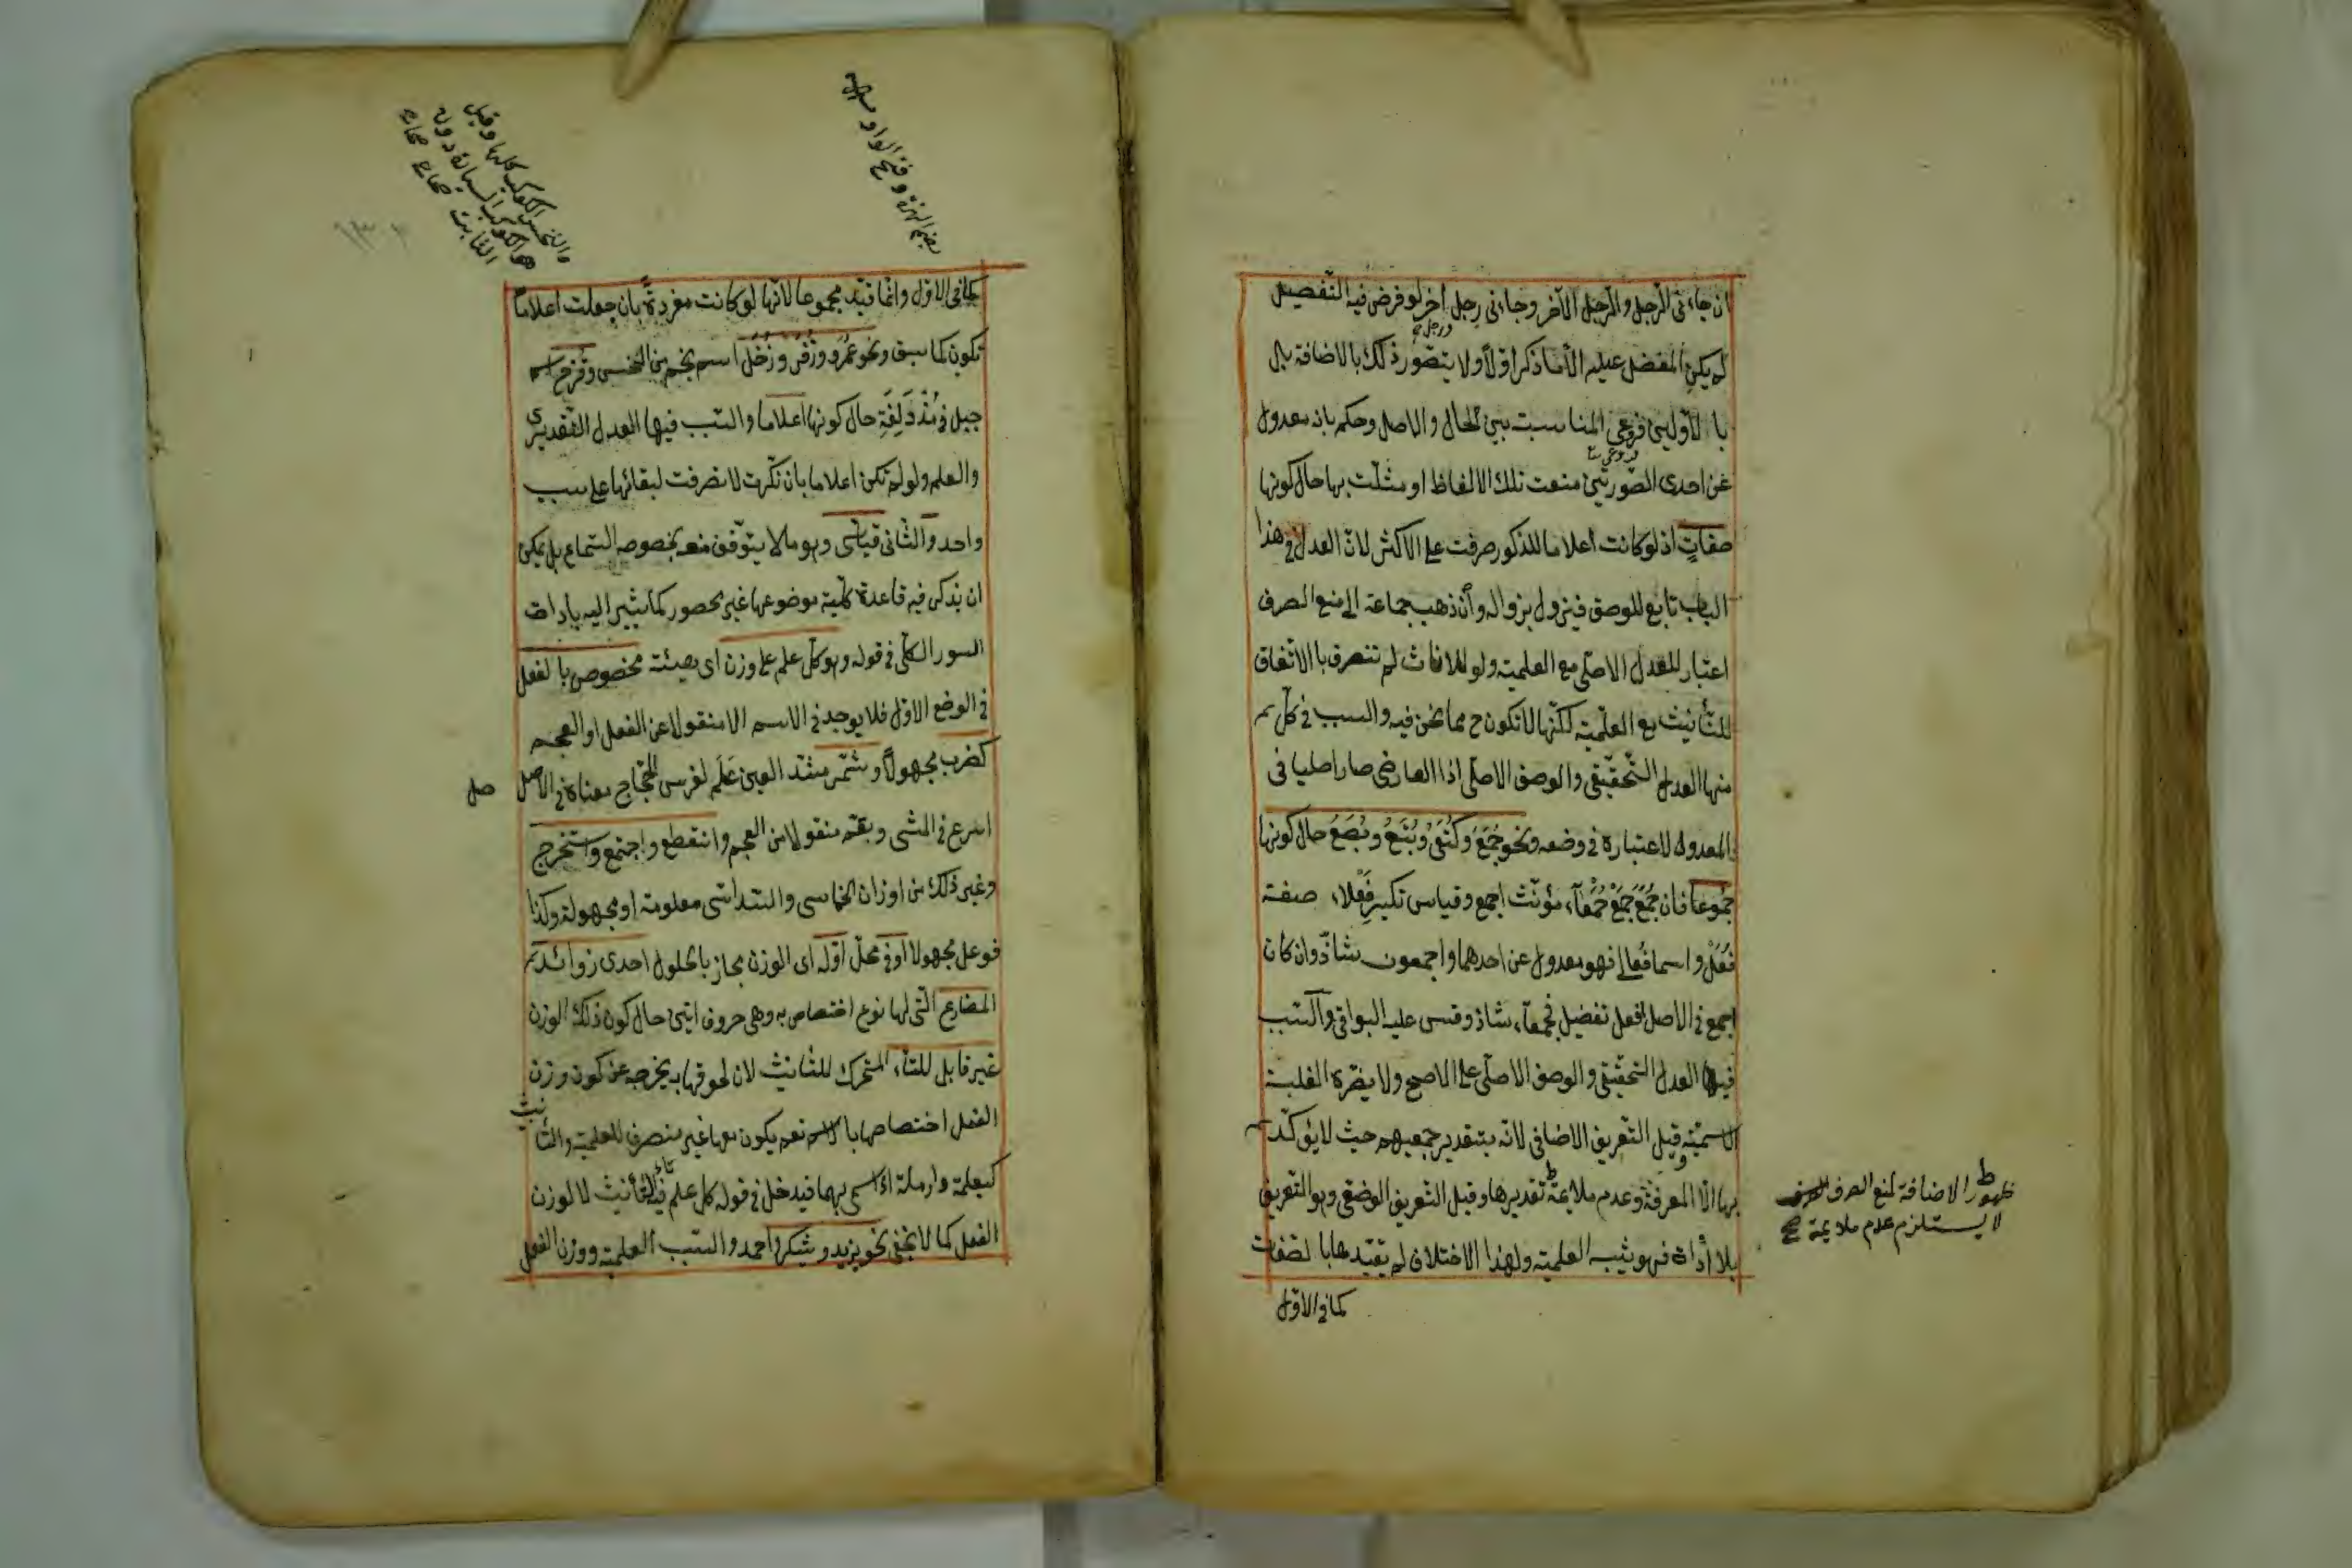 ان جاءنى الرجل والرجل الآخر وجاءنى رجل آخر لو فرض فيه التفصيل
لم يكن المفضل عليه الا ما ذكر اولا ولا يتصور ذلك بالاضافة بل
با لاوليين فروعى المناسبت بين الحال والاصل وحكم بانه معدول
عن احدى الصورتين منعت تلك الالفاظ او مثلت بها حال كونها
صفات اذ لو كانت اعلاما للمذكور صرفت على الاكثر لان العدل فى هذا
الباب تابع للوصف فيزول بزواله وان ذهب جماعة الى منع الصرف
اعتبار للعدل الاصلى مع العلمية ولو للاناث لم تنصرف بالاتفاق
للتأنيث مع العلمية لكنها لا تكون ح مما نحن فيه والسبب فى كل
منها العدل التحقيقى والوصف الاصلى اذا العارضى صار اصليا فى
المعدول لاعتباره فى وضعه ونحو جُمَعَ وكُتَعَ وبُتَعَ وبُصَعَ حال كونها
جموعا فان جُمَعَ جمع جمعاء مؤنث اجمع وقياس تكسير فعلاء صفة
فُعْلٌ واسما فعالى فهو معدول عن احدهما واجمعون شاذ وان كان
اجمع فى الاصل افعل تفضيل فجمعاء شاذ وقس عليه البواقى والسبب
فيها العدل التحقيقى والوصف الاصلى على الاصح ولا يضره الغلبة
الاسمية وقيل التعريف الاضافى لانه بتقدير جميعهم حيث لا يؤكد
بها الا المعرفة وعدم ملايمة تقديرها وقيل التعريف الوضعى وهو التعريف
بلا أداة فهو شبه العلمية ولهذا الاختلاف لم يقيدها بالصفات
كما فى الاول
ظهور الاضافة لمنع الصرف
لا يستلزم عدم ملايمة
كما فى الاول وانما قيد مجموعا لانها لو كانت مفردة بان جعلت اعلاما
تكون كما سبق ونحو عُمَرَ وزُفَرَ وزُحَلَ اسم نجم من الخنس وقزح اسم
جبل فى مزدلفة حال كونها اعلاما والسبب فيها العدل التقديرى
والعلم ولو لم تكن اعلاما بان نكرت لانصرفت لبقائها على سبب
واحد والثانى قياسى وهو ما لا يتوقف منعه بخصوصه السماع بل يمكن
ان يذكر فيه قاعدة كلية موضوعها غير محصور كما يشير اليه بادات
السور الكلى فى قوله وهو كل علم على وزن اى بهيئته مخصوص بالفعل
فى الوضع الاول فلا يوجد فى الاسم الا منقولا عن الفعل او العجم
كضرب مجهولا وشمر مشدد العين علم لفرس الحجاج معناه فى الاصل
اسرع فى المشى وبقم منقولا من العجم وانقطع واجتمع واستخرج
وغير ذلك من اوزان الخماسى والسداسى معلومة او مجهولة وكذا
فوعل مجهولا او فى محل اوله اى الوزن مجاز بالحلول احدى زوائد
المضارع التى لها نوع اختصاص به وهى حروف اتين حال كون ذلك الوزن
غير قابل للتاء المتحرك للتأنيث لان لحوقها به يخرجه عن كون وزن
الفعل اختصاصها بالاسم نعم يكون معها غير منصرف للعلمية والتأنيث
كيعلمة وارملة اذا سمى بهما فيدخل فى قوله كل علم فيه تاء التأنيث لا لوزن
الفعل كما لا يخفى نحو يزيد ويشكر واحمد والسبب العلمية ووزن الفعل
بضم الهمزة وفتح الواو
والخنس الكواكب كلها وقيل
هو الكواكب السيارة دون
الثابت صحاح